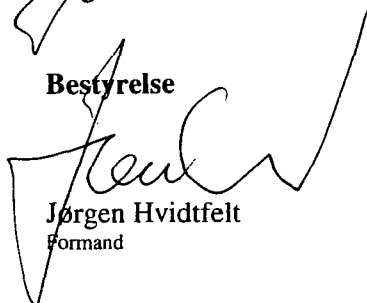 Bestyrelse
Jørgen Hvidtfelt
Formand